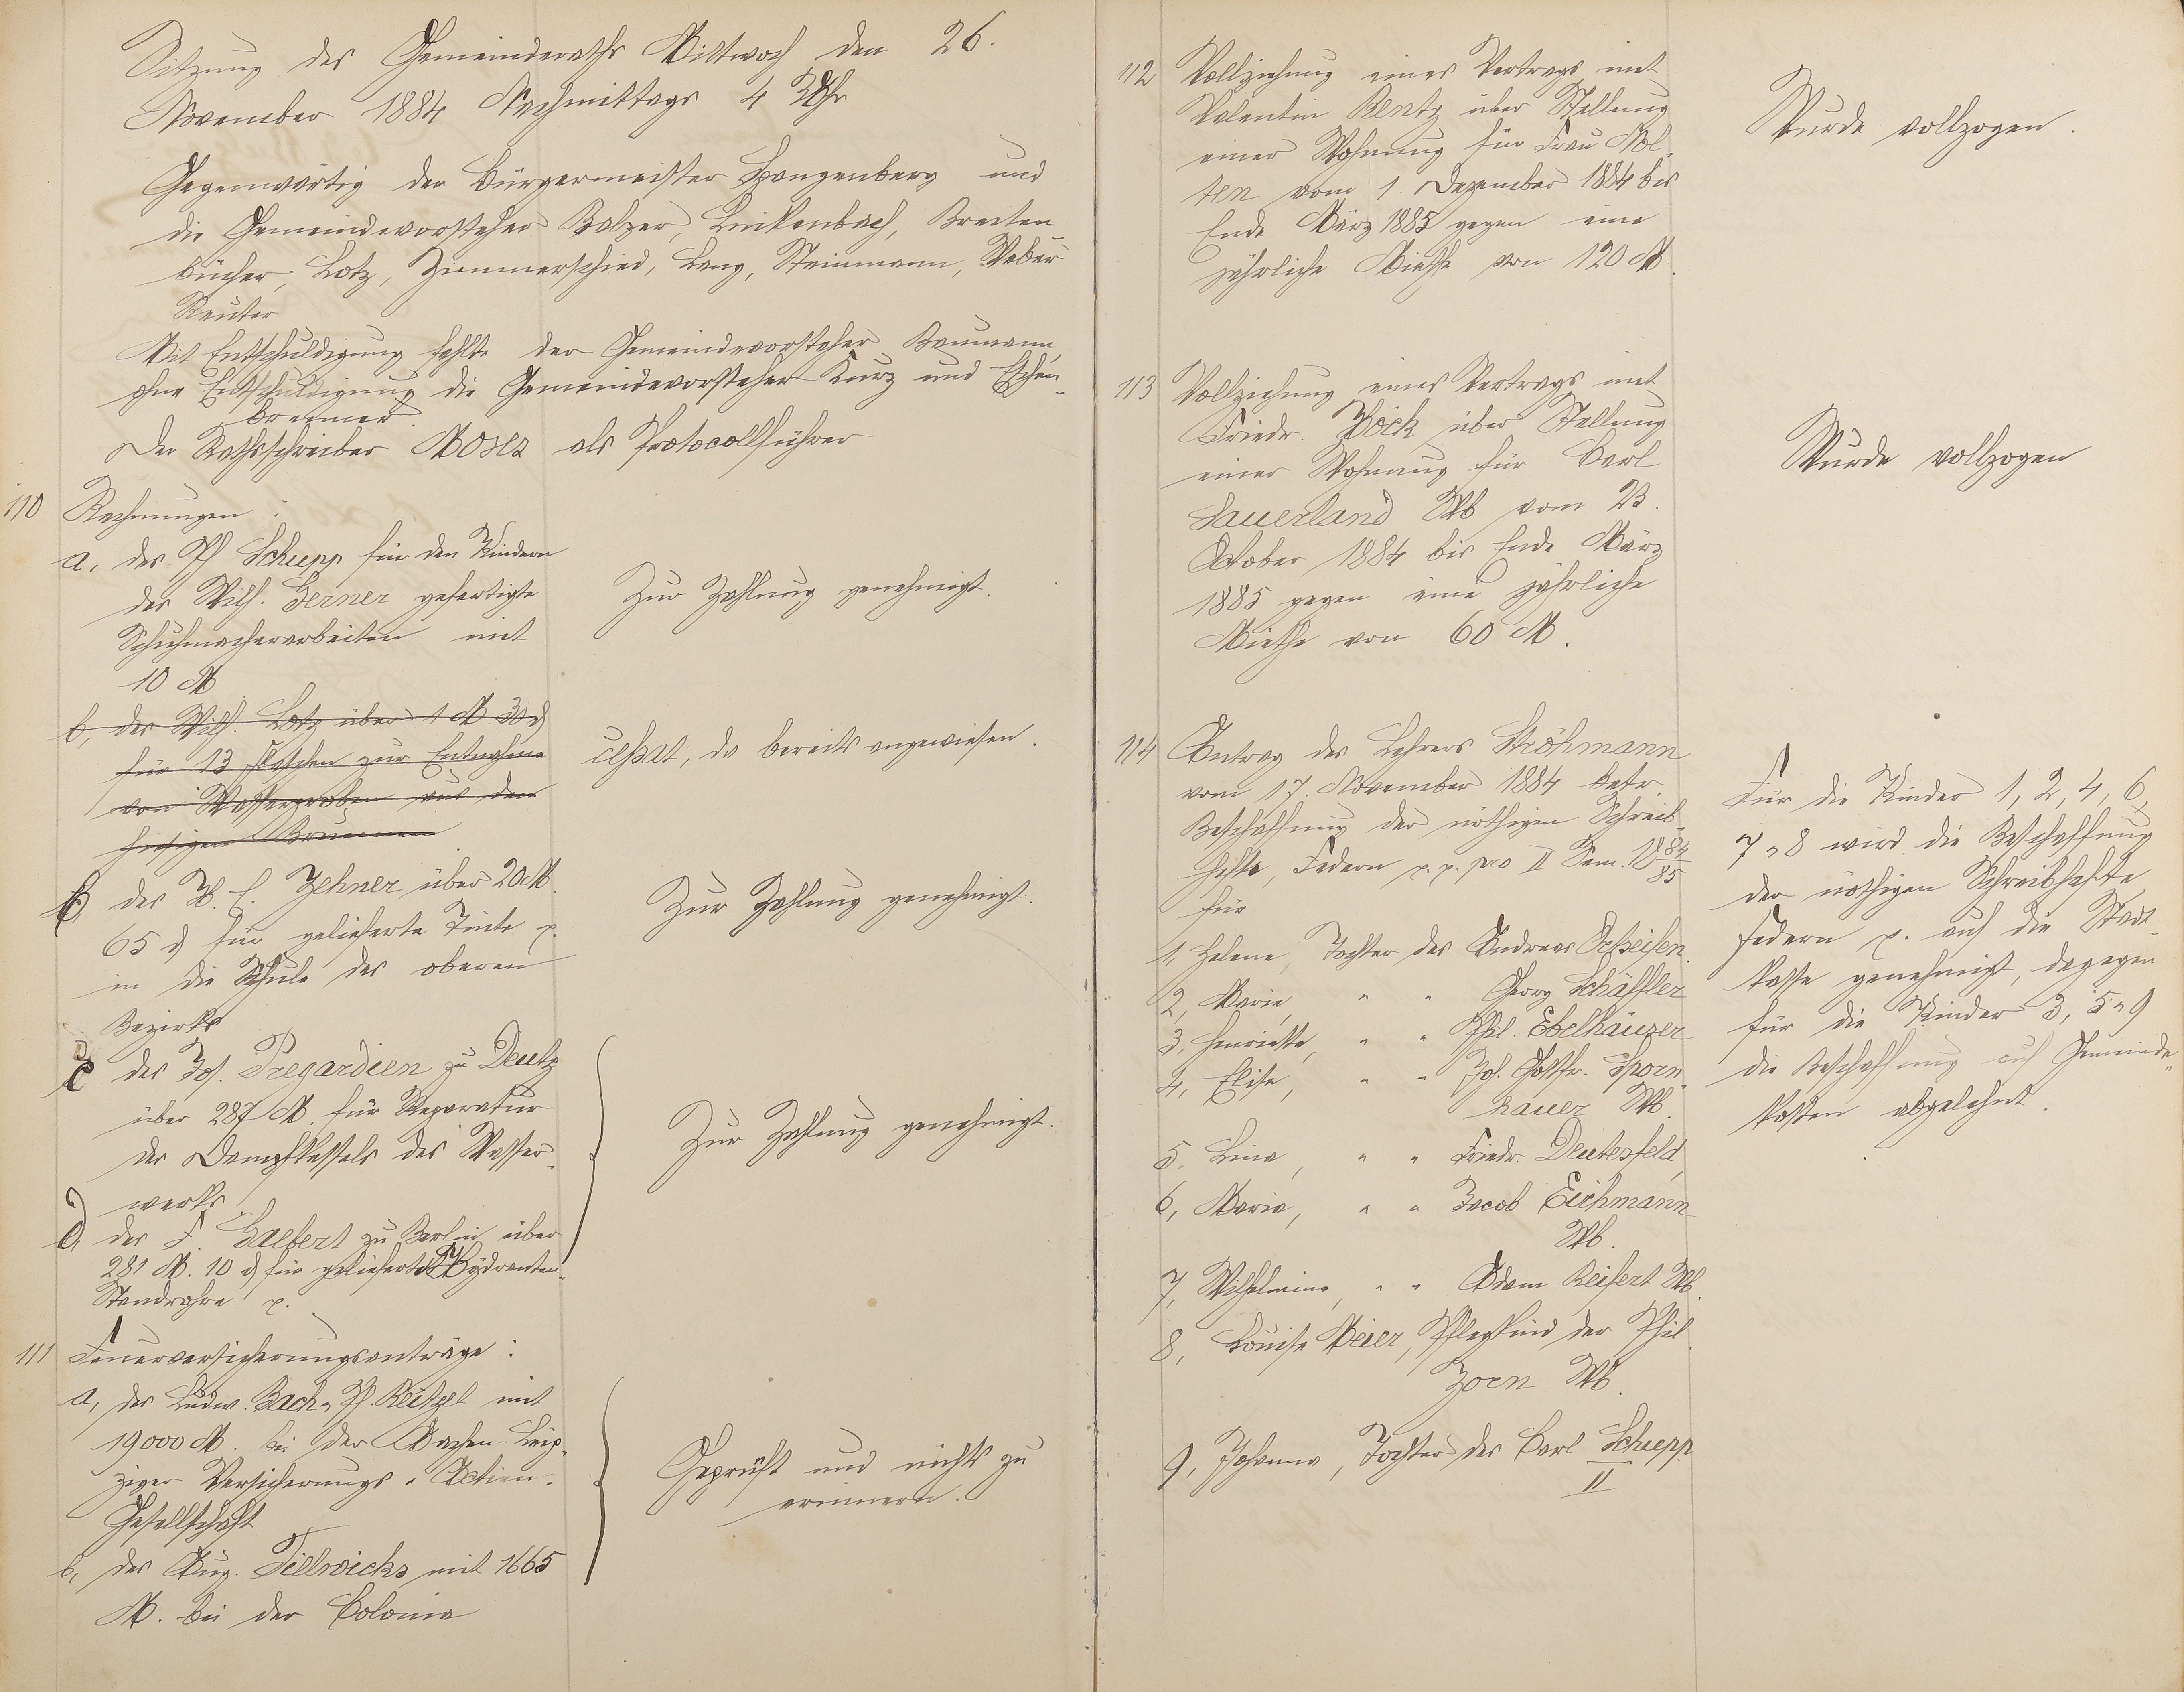 Sitzung des Gemeinderaths Mittwoch den 26.
November 1884 Nachmittags 4 Uhr
Gegenwärtig der Bürgermeister Spangenberg und
die Gemeindevorsteher Balzer, Linkenbach, Breiten
bücher, Lotz, Zimmerschied, Lang, Steinmann, Weber
Reuter
Mit Entschuldigung fehlte der Gemeindevorsteher Baumann,
ohne Entschuldigung die Gemeindevorsteher Kurz und Eschen-
brenner.
Der Rathsschreiber Moser als Protocollführer
110 Rechnungen:
a, des Ph. Schupp für den Kindern
des Wilh. Gerner gefertigte
Schuhmacherarbeiten mit
10 M
Zur Zahlung genehmigt.
b, des Wilh. Lotz über 1 M. 30 ₰
für 13 Flaschen zur Entnahme
von Wasserproben aus dem
hiesigen Brunnen
cessat, da bereits angewiesen.
b, des H. C. Zehner über 20 M.
65 ₰ für gelieferte Tinte p.
in die Schule des oberen
Bezirks
Zur Zahlung genehmigt.
c des Jos. Pregardien zu Deutz
über 287 M. für Reparatur
des Dampfkessels des Wasser-
werks.
d, des F. Gaebert zu Berlin über
281 M. 10 ₰ für gelieferte Hydranten-
Standrohre p.
Zur Zahlung genehmigt.
111 Feuerversicherungsanträge:
a, des Ludw. Bach u. Ph. Reitzel mit
19000 M. bei der Aachen-Leip-
ziger Versicherungs-Actien-
Gesellschaft
b, des Aug. Dillwicks mit 1665
M. bei der Colonia
Geprüft und nichts zu
erinnern.
112 Vollziehung eines Vertrags mit
Valentin Bentz über Stellung
einer Wohnung für Frau Nol-
ten vom 1. Dezember 1884 bis
Ende März 1885 gegen eine
jährliche Miethe von 120 M.
Wurde vollzogen.
113 Vollziehung eines Vertrags mit
Friedr. Böck über Stellung
einer Wohnung für Carl
Sauerland Wb vom 23.
October 1884 bis Ende März
1885 gegen eine jährliche
Miethe von 60 M.
Wurde vollzogen
114 Antrag des Lehrers Ströhmann
vom 17. November 1884 betr.
Beschaffung der nöthigen Schreib-
hefte, Federn p. p. pro II Sem. 1884/85
für
1, Helene, Tochter des Andreas
2, Marie, " " Georg Schäffler
3, Henriette, " " Phil. Ebelhäuser
4, Elise, " " Joh. Gottfr. Sporn-
hauer Wb.
5, Lina, " " Friedr. Deutesfeld,
6, Maria, " " Jacob Eichmann
Wb.
7, Wilhelmine, " " Adam Reifert Wb.
8, Louise Meier, Pflegkind der Phil.
Zorn Wb.
9, Johanna, Tochter des Carl Schupp
II
Für die Kinder 1, 2, 4, 6,
7 u 8 wird die Beschaffung
der nöthigen Schreibhefte
Federn p. auf die Stadt-
kasse genehmigt, dagegen
für die Kinder 3, 5 u 9
die Beschaffung auf Gemeinde-
kosten abgelehnt.